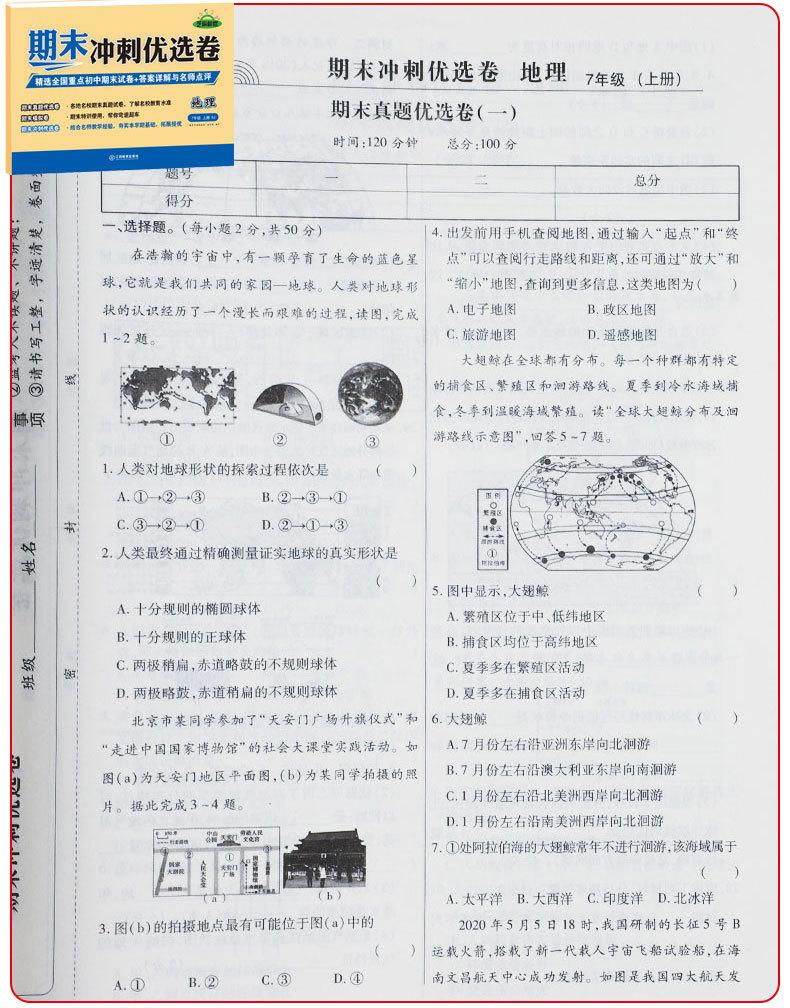 期末冲刺优选卷
精选全国重点初中期末试卷+答案详解与名师点评
期末真题优选卷
期末模拟卷
期末冲刺优选卷
地理
期末冲刺优选卷 地理 7年级(上册)
期末真题优选卷(一)
时间:120分钟 总分:100分
题号 一 二 总分
得分
一、选择题。(每小题2分,共50分)
在浩瀚的宇宙中,有一颗孕育了生命的蓝色星
球,它就是我们共同的家园—地球。人类对地球形
状的认识经历了一个漫长而艰难的过程,读图,完成
1~2题。
① ② ③
1.人类对地球形状的探索过程依次是 ( )
A.①→②→③ B.②→③→①
C.③→②→① D.②→①→③
2.人类最终通过精确测量证实地球的真实形状是
( )
A.十分规则的椭圆球体
B.十分规则的正球体
C.两极稍扁,赤道略鼓的不规则球体
D.两极略鼓,赤道稍扁的不规则球体
北京市某同学参加了“天安门广场升旗仪式”和
“走进中国国家博物馆”的社会大课堂实践活动。如
图(a)为天安门地区平面图,(b)为某同学拍摄的照
片。据此完成3~4题。
中山公园
天安门
劳动人民文化宫
国家大剧院
人民大会堂
天安门广场
国家博物馆
(a) (b)
3.图(b)的拍摄地点最有可能位于图(a)中的
( )
A.① B.② C.③ D.④
4.出发前用手机查阅地图,通过输入“起点”和“终
点”可以查阅行走路线和距离,还可通过“放大”和
“缩小”地图,查询到更多信息,这类地图为( )
A.电子地图 B.政区地图
C.旅游地图 D.遥感地图
大翅鲸在全球都有分布。每一个种群都有特定
的捕食区、繁殖区和洄游路线。夏季到冷水海域捕
食,冬季到温暖海域繁殖。读“全球大翅鲸分布及洄
游路线示意图”,回答5~7题。
图例
繁殖区
捕食区
洄游路线
①
阿拉伯海
5.图中显示,大翅鲸 ( )
A.繁殖区位于中、低纬地区
B.捕食区均位于高纬地区
C.夏季多在繁殖区活动
D.夏季多在捕食区活动
6.大翅鲸 ( )
A.7月份左右沿亚洲东岸向北洄游
B.7月份左右沿澳大利亚东岸向南洄游
C.1月份左右沿北美洲西岸向北洄游
D.1月份左右沿南美洲西岸向北洄游
7.①处阿拉伯海的大翅鲸常年不进行洄游,该海域属于
( )
A.太平洋 B.大西洋 C.印度洋 D.北冰洋
2020年5月5日18时,我国研制的长征5号B
运载火箭,搭载了新一代载人宇宙飞船试验船,在海
南文昌航天中心成功发射。如图是我国四大航天发
事项
③请书写工整,字迹清楚,卷面
班级
姓名
密
封
线